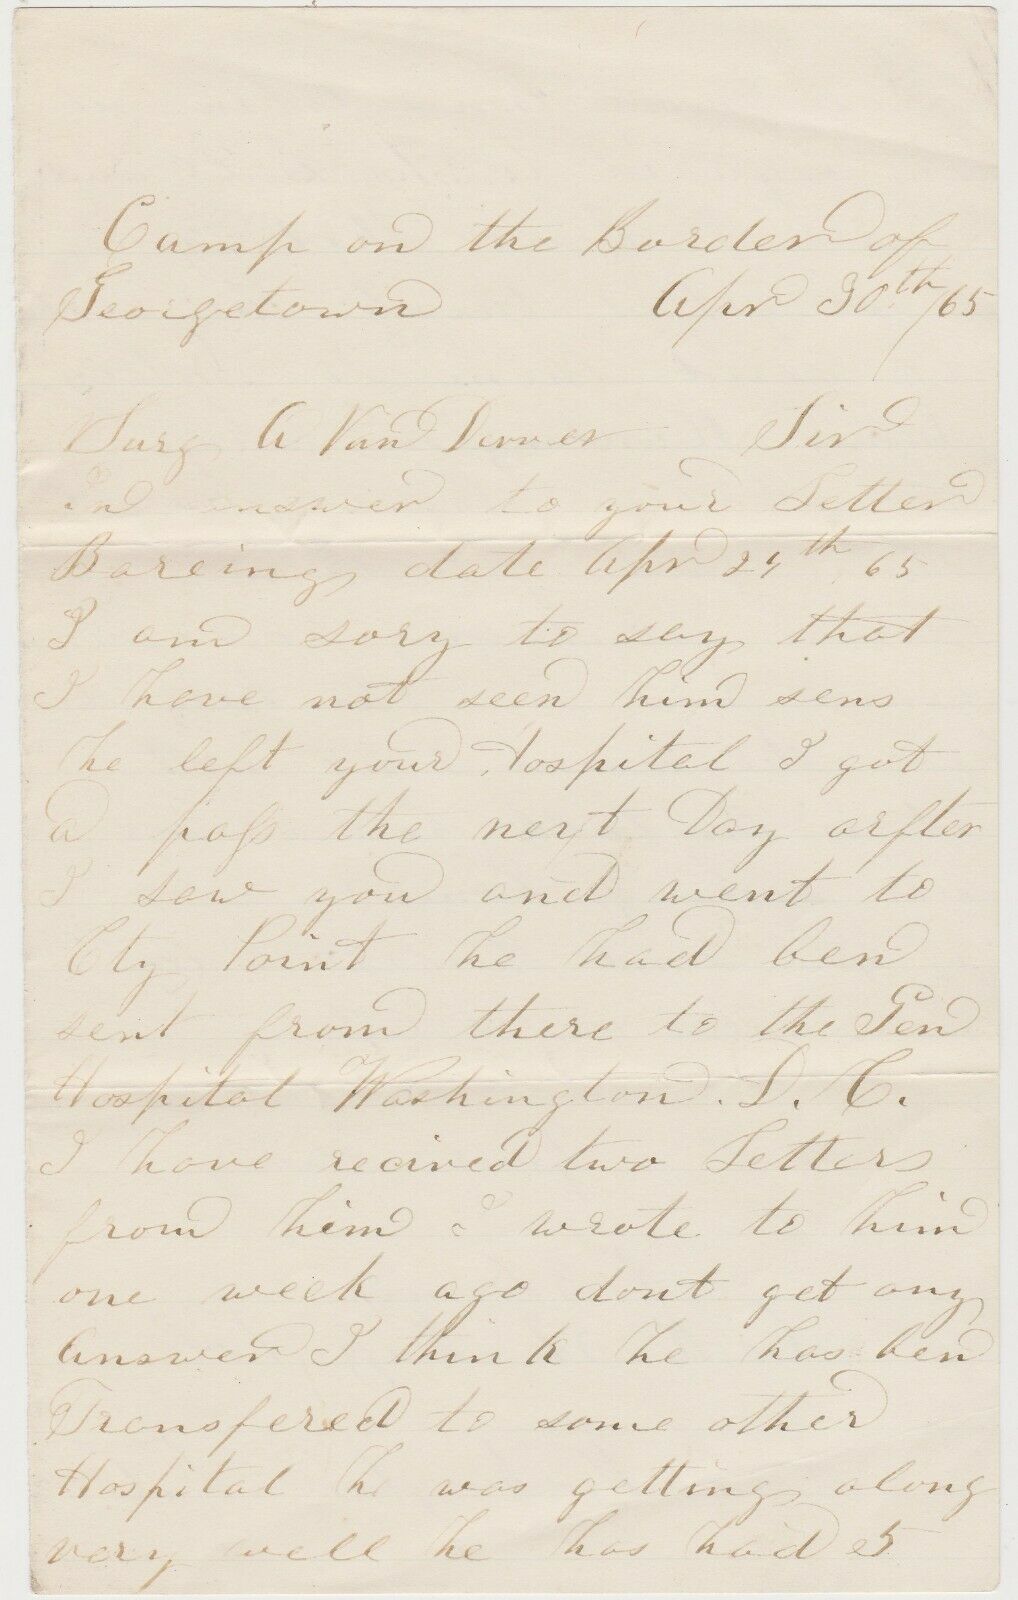 Camp on the Border of
Georgetown Apr 30th /65
Surg A Van Derveer Sir
In answer to your Letter
Bareing date Apr 24th 65
I am sory to say that
I have not seen him sens
he left your Hospital I got
a pass the next Day arfter
I saw you and went to
Cty Point he had ben
sent from there to the Gen
Hospital Washington. D. C.
I have recived two Letters
from him I wrote to him
one week ago dont get any
answer I think he has ben
Transfered to some other
Hospital he was getting along
very well he has had 25